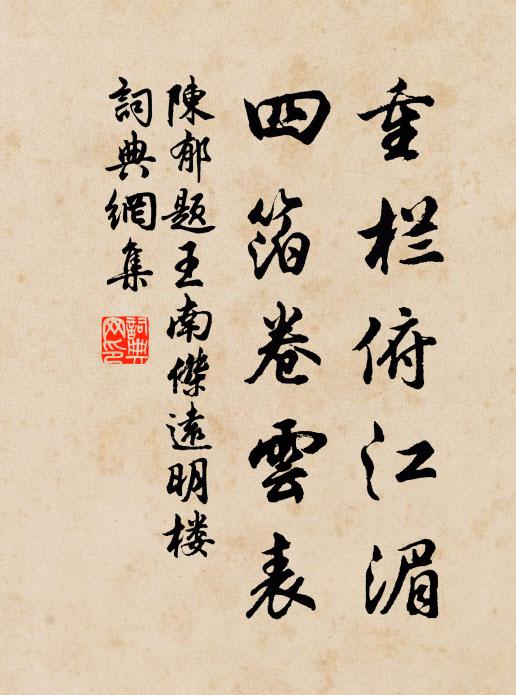 重栏俯江湄
四箔卷雲表
陳郁题王南傑遠明楼
詞典網集
詞典网印